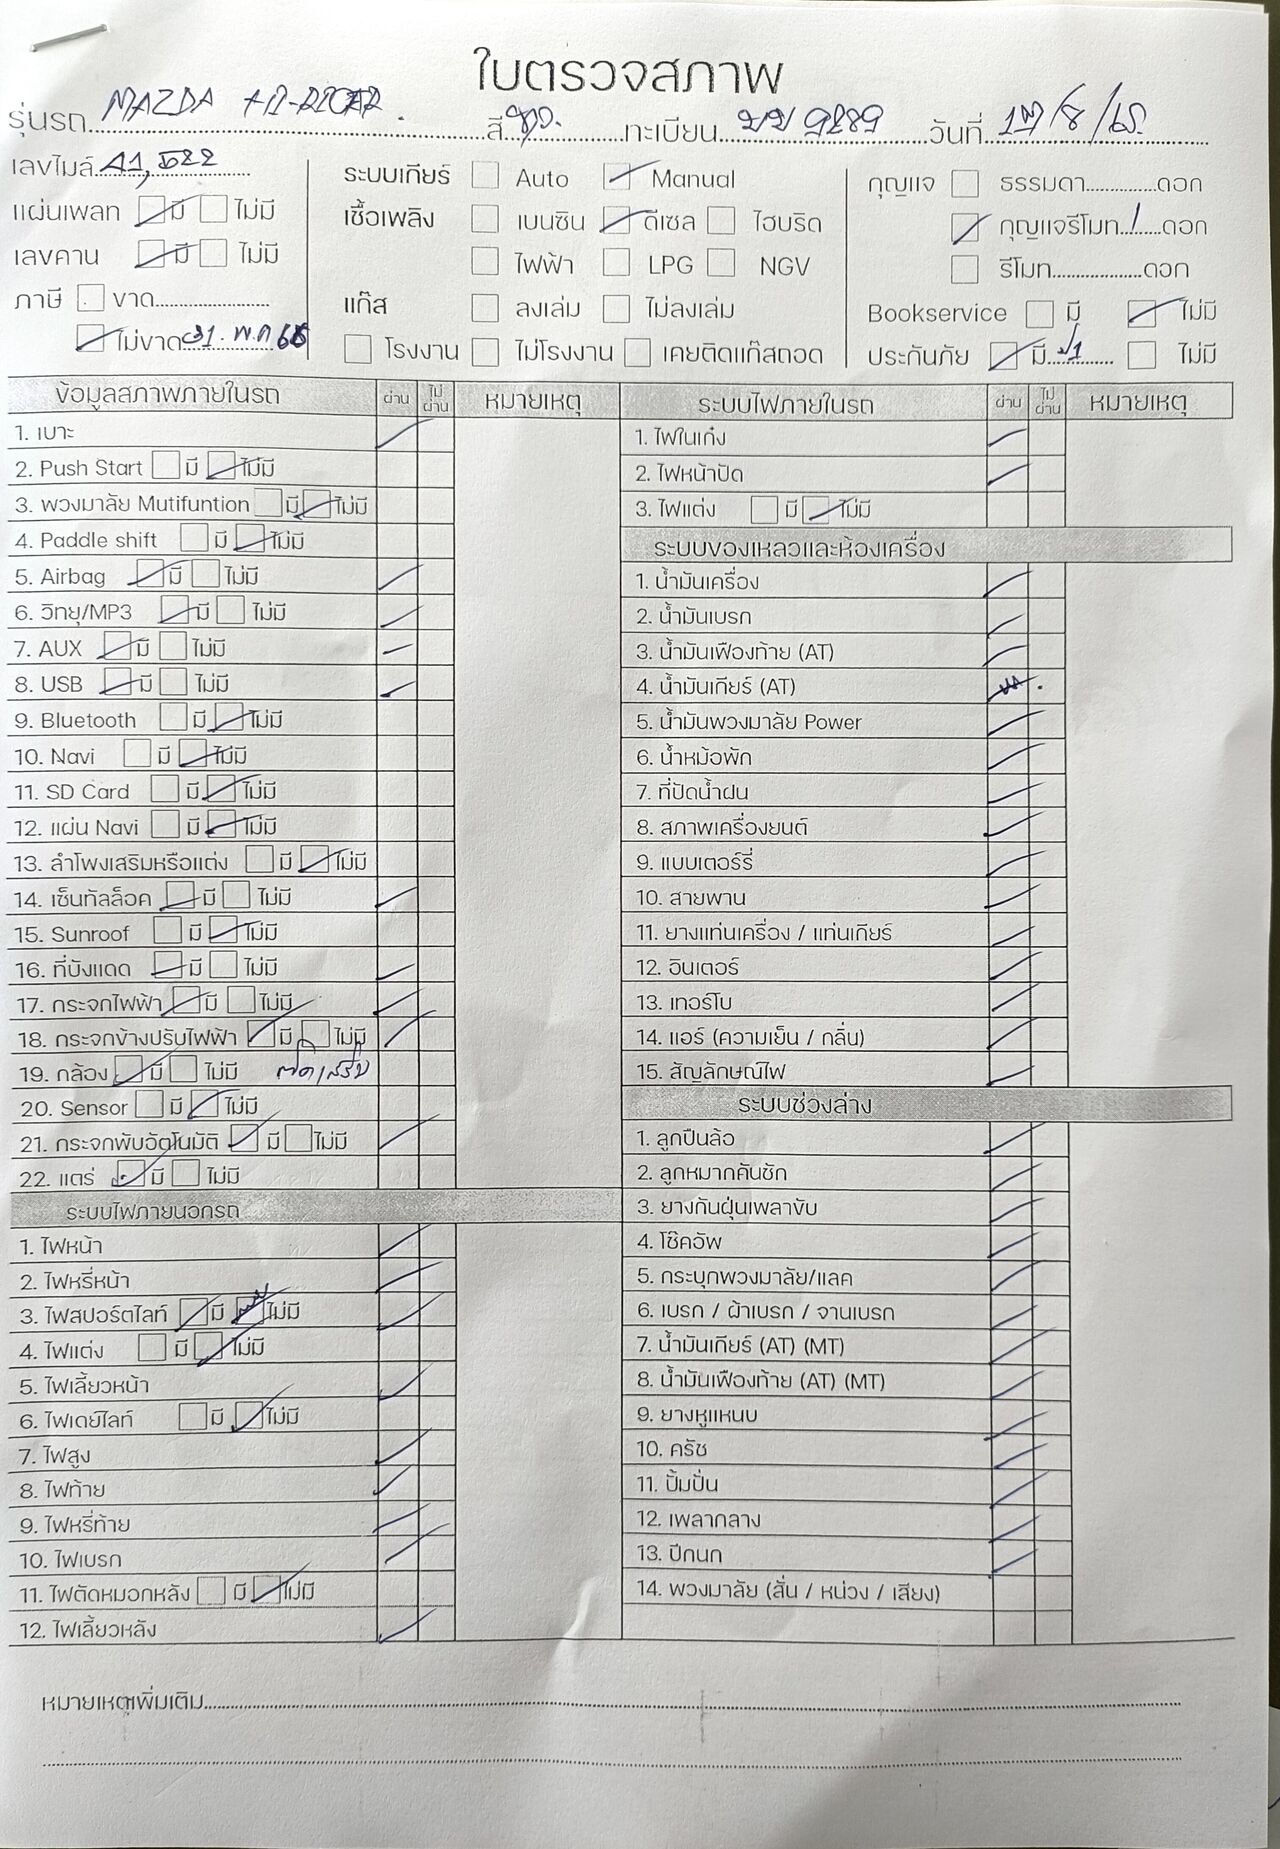 ใบตรวจสภาพ
รุ่นรถ MAZDA สี ทะเบียน วันที่
เลขไมล์ ระบบเกียร์ Auto Manual กุญแจ ธรรมดา ดอก
แผ่นเพลท มี ไม่มี เชื้อเพลิง เบนซิน ดีเซล ไฮบริด กุญแจรีโมท 1 ดอก
เลขคาน มี ไม่มี ไฟฟ้า LPG NGV รีโมท ดอก
ภาษี ขาด แก๊ส ลงเล่ม ไม่ลงเล่ม Bookservice มี ไม่มี
ไม่ขาด 31. พ.ค โรงงาน ไม่โรงงาน เคยติดแก๊สถอด ประกันภัย มี ป1 ไม่มี
ข้อมูลสภาพภายในรถ ผ่าน ไม่ผ่าน หมายเหตุ
1. เบาะ
2. Push Start มี ไม่มี
3. พวงมาลัย Mutifuntion มี ไม่มี
4. Paddle shift มี ไม่มี
5. Airbag มี ไม่มี
6. วิทยุ/MP3 มี ไม่มี
7. AUX มี ไม่มี
8. USB มี ไม่มี
9. Bluetooth มี ไม่มี
10. Navi มี ไม่มี
11. SD Card มี ไม่มี
12. แผ่น Navi มี ไม่มี
13. ลำโพงเสริมหรือแต่ง มี ไม่มี
14. เซ็นทัลล็อค มี ไม่มี
15. Sunroof มี ไม่มี
16. ที่บังแดด มี ไม่มี
17. กระจกไฟฟ้า มี ไม่มี
18. กระจกข้างปรับไฟฟ้า มี ไม่มี
19. กล้อง มี ไม่มี ติดเสริม
20. Sensor มี ไม่มี
21. กระจกพับอัตโนมัติ มี ไม่มี
22. แตร่ มี ไม่มี
ระบบไฟภายนอกรถ
1. ไฟหน้า
2. ไฟหรี่หน้า
3. ไฟสปอร์ตไลท์ มี ไม่มี
4. ไฟแต่ง มี ไม่มี
5. ไฟเลี้ยวหน้า
6. ไฟเดย์ไลท์ มี ไม่มี
7. ไฟสูง
8. ไฟท้าย
9. ไฟหรี่ท้าย
10. ไฟเบรก
11. ไฟตัดหมอกหลัง มี ไม่มี
12. ไฟเลี้ยวหลัง
ระบบไฟภายในรถ ผ่าน ไม่ผ่าน หมายเหตุ
1. ไฟในเก๋ง
2. ไฟหน้าปัด
3. ไฟแต่ง มี ไม่มี
ระบบของเหลวและห้องเครื่อง
1. น้ำมันเครื่อง
2. น้ำมันเบรก
3. น้ำมันเฟืองท้าย (AT)
4. น้ำมันเกียร์ (AT)
5. น้ำมันพวงมาลัย Power
6. น้ำหม้อพัก
7. ที่ปัดน้ำฝน
8. สภาพเครื่องยนต์
9. แบบเตอร์รี่
10. สายพาน
11. ยางแท่นเครื่อง / แท่นเกียร์
12. อินเตอร์
13. เทอร์โบ
14. แอร์ (ความเย็น / กลิ่น)
15. สัญลักษณ์ไฟ
ระบบช่วงล่าง
1. ลูกปืนล้อ
2. ลูกหมากคันชัก
3. ยางกันฝุ่นเพลาขับ
4. โช๊คอัพ
5. กระบุกพวงมาลัย/แลค
6. เบรก / ผ้าเบรก / จานเบรก
7. น้ำมันเกียร์ (AT) (MT)
8. น้ำมันเฟืองท้าย (AT) (MT)
9. ยางหูแหนบ
10. ครัช
11. ปั้มปั่น
12. เพลากลาง
13. ปีกนก
14. พวงมาลัย (สั่น / หน่วง / เสียง)
หมายเหตุเพิ่มเติม